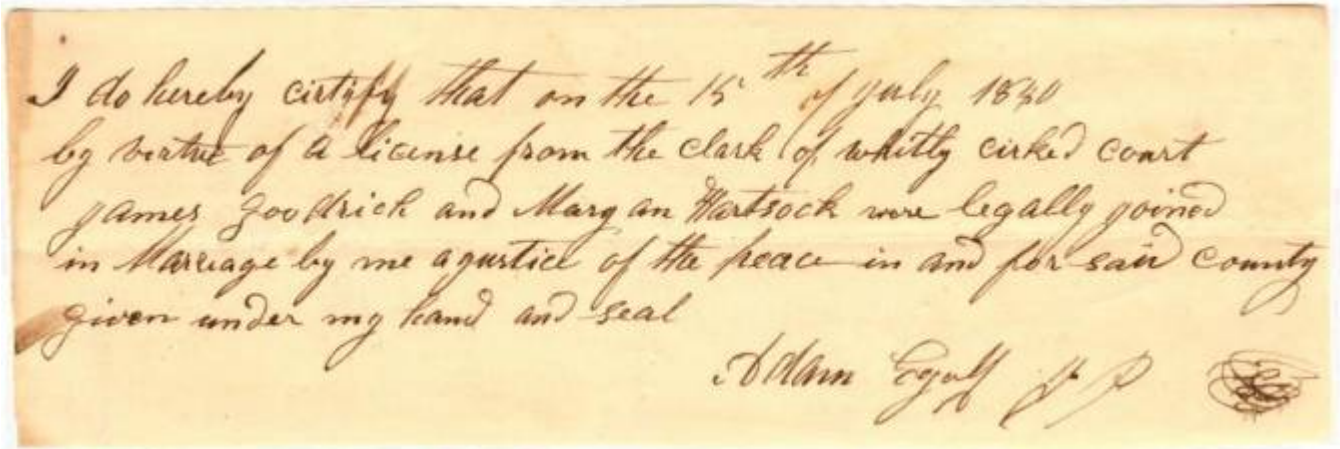 I do hereby cirtify that on the 15th of July 1840
by virtue of a license from the clark of whitly cirked court
James Goodrich and Mary an Hartsock were legally joined
in Marreage by me a justice of the peace in and for said County
given under my hand and seal
Adam Egolf J P